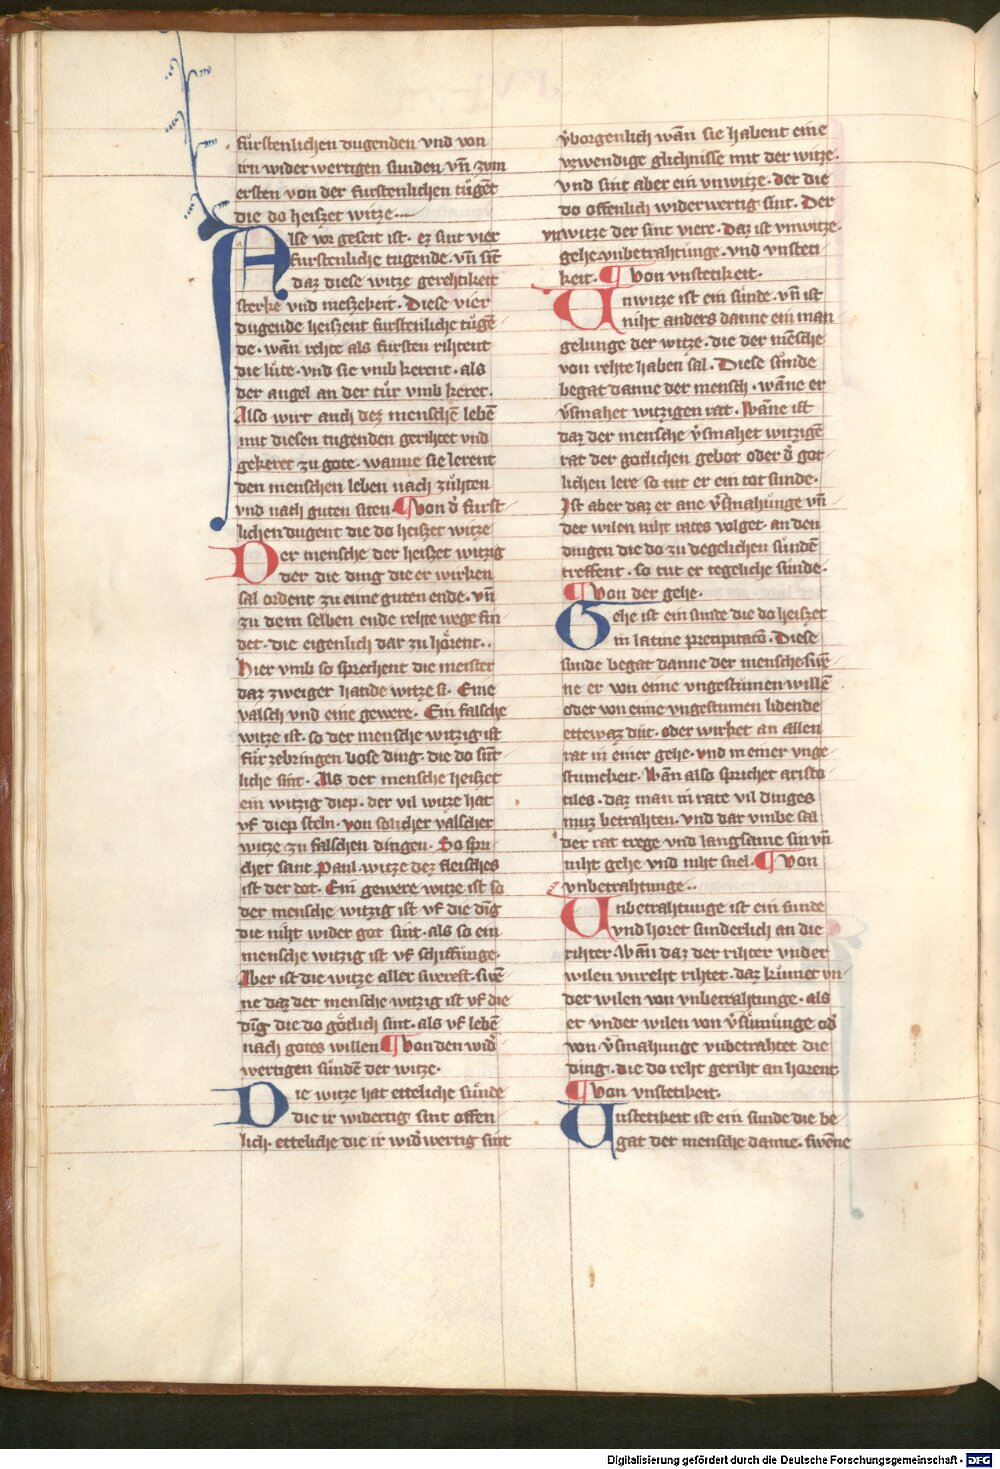 fürstenlichen dugenden vnd von
irn wider wertigen sunden vn̄ zvm
ersten von der furstenlichen tůgēt
die do heiszet witze
Alse vor geseit ist· ez sint vier
furstenliche tugende· vn̄ sīt
daz diese witze gerehtikeit
sterke vnd meszekeit· Diese vier
dugende heiszent furstenliche tůgē
de· wān rehte als fursten rihtent
die lůte· vnd sie vmb kerent· als
der angel an der tůr vmb keret·
Also wirt auch dez menschē lebē
mit diesen tugenden gerihtet vnd
gekeret zu gote· wanne sie lerent
den menschen leben nach zůhten
vnd nach guten siten· ¶ Von d̓ furst
lichen dugent die do heiszet witze
Der mensche der heiszet witzig
der die ding die er wirken
sal ordent zu eime guten ende· vn̄
zu dem selben ende rehte wege fin
det· die eigenlich dar zu hőrent··
Hier vmb so sprechent die meister
daz zweiger hande witze si· Eine
valsch vnd eine gewere· Ein falsche
witze ist· so der mensche witzig ist
für zebringen bose ding· die do sůt
liche sint· Als der mensche heiszet
ein witzig diep· der vil witze hat
vf diep steln· von solicher valscher
witze zu falschen dingen· So spri
chet sant Paul witze dez fleisches
ist der dot· Ein gewere witze ist so
der mensche witzig ist vf die dīg
die niht wider got sint· als so ein
mensche witzig ist vf schiffůnge·
Aber ist die witze aller swerest· swē
ne daz der mensche witzig ist vf die
dīg die do gőtlich sint· als vf lebē
nach gotes willen ¶ Von den wid̓
wertigen sůndē der witze·
Die witze hat etteliche sůnde
die ir widertig sint offen
lich· etteliche die ir wid̓wertig sint
v̓borgenlich wān sie habent eine
vzwendige glichnisse mit der witze·
vnd sint aber ein vnwitze· der die
do offenlich widerwertig sint· Der
vnwitze der sint viere· Daz ist vnwitze·
gehe· vnbetrahtůnge· vnd vnsteti
keit· ¶ Von vnstetikeit·
Vnwitze ist ein sůnde· vn̄ ist
niht anders danne ein man
gelunge der witze· die der mēsche
von rehte haben sal· Diese sůnde
begat danne der mensch· wāne er
v̓smahet witzigen rat· Wāne ist
daz der mensche v̓smahet witzigē
rat der gotlichen gebot oder d̓ got
lichen lere so tut er ein tot sunde·
Jst aber daz er ane v̓smahůnge vn̄
der wilen niht rates volget· an den
dingen die do zu degelichen sůndē
treffent· so tut er tegeliche sůnde·
¶ Von der gehe·
Gehe ist ein sunde die do heiszet
in latine precipitacō· Diese
sunde begat danne der mensche· swē
ne er von eime vngestůmen willē
oder von eime vngestumen lidende
ettewaz důt· oder wirket an allen
rat in einer gehe· vnd in einer vnge
stumekeit· Wān also sprichet aristo
tiles· daz man in rate vil dinges
muz betrahten· vnd dar vmbe sal
der rat trege vnd langsame sin vn̄
niht gehe vnd niht snel· ¶ Von
vnbetrahtunge··
Vnbetrahtunge ist ein sunde
vnd horet sunderlich an die
rihter· Wān daz der rihter vnder
wilen vnreht rihtet· daz kůmet vn
der wilen von vnbetrahtunge· als
er vnder wilen von v̓sůmůnge od̓
von v̓smahunge vnbetrahtet die
ding· die do reht geriht an horent
¶ Von vnstetikeit·
Vnstetikeit ist ein sunde die be
gat der mensche danne· swēne
Digitalisierung gefördert durch die Deutsche Forschungsgemeinschaft - DFG